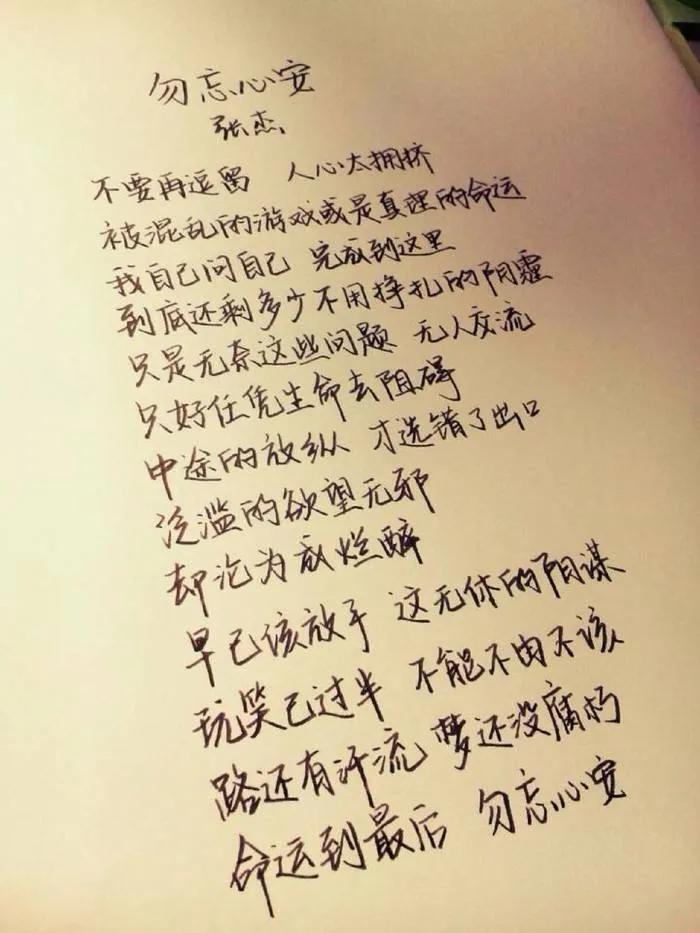 勿忘心安
张杰
不要再逗留 人心太拥挤
被混乱的游戏或是真理的命运
我自己问自己 完成到这里
到底还剩多少不用挣扎的阴霾
只是无奈这些问题 无人交流
只好任凭生命去阻碍
中途的放纵 才选错了出口
泛滥的欲望无邪
却沦为成烂醉
早已该放手 这无休的阴谋
玩笑已过半 不能不由不该
路还有汗流 梦还没腐朽
命运到最后 勿忘心安